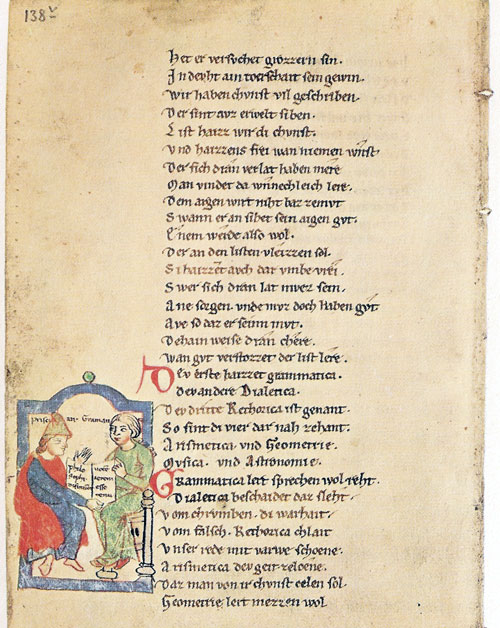 138v
Het er versuchet grozzern sin.
In devht ain torschait sein gewin.
Wir haben chvnst vil geschriben.
Der sint avz erwelt siben.
List haizz wir di chvnst.
Vnd haizzens frei wan niemen
Der sich dran verlat haben mere
Man vindet da wnnechleich lere.
Dem aigen wirt niht
Swann er an sihet sein aigen gvt.
Einem weide also wol.
Der an den listen vleizzen sol.
Si haizzet avch dar vmbe vrei.
Swer sich dran lat mvez sein.
Ane sorgen vnde mvz doch haben gvt
Ave so dar er seinn mvt.
Dehain weise dran chere.
Wan gvt verstorzet der list lere.
Dev erste haizzet grammatica.
Dev ander Dialetica.
Dev dritte Rethorica ist genant.
So sint di vier dar nah zehant.
Arismetica vnd Geometrie.
Mvsica. vnd Astronomie.
priscian. Graman
Grammatica lert sprechen wol reht.
Dialetica beschaidet daz sleht.
philosophi
esse
Vom chrvmben. di warhait.
Vom falsch. Rethorica chlait
Vnser rede mit varwe schoene.
Arismetica dev geit
Daz man von ir chvnst celen sol.
Geometrie lert mezzen wol